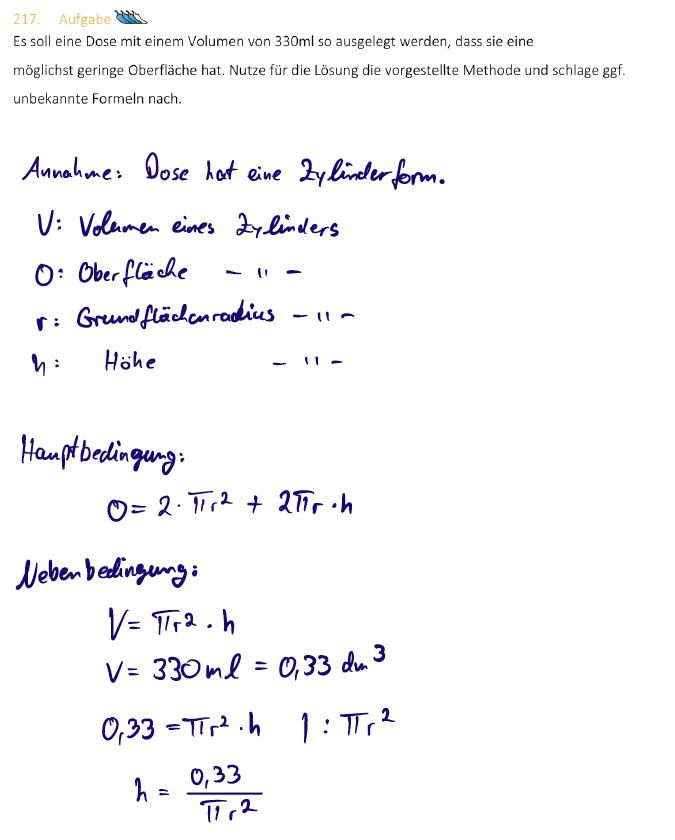 217. Aufgabe
Es soll eine Dose mit einem Volumen von 330ml so ausgelegt werden, dass sie eine
möglichst geringe Oberfläche hat. Nutze für die Lösung die vorgestellte Methode und schlage ggf.
unbekannte Formeln nach.
Annahme: Dose hat eine Zylinderform.
V: Volumen eines Zylinders
O: Oberfläche – " –
r: Grundflächenradius – " –
h: Höhe – " –
Hauptbedingung:
O = 2 · πr² + 2πr · h
Nebenbedingung:
V = πr² · h
V = 330 ml = 0,33 dm³
0,33 = πr² · h | : πr²
h = 0,33 / πr²